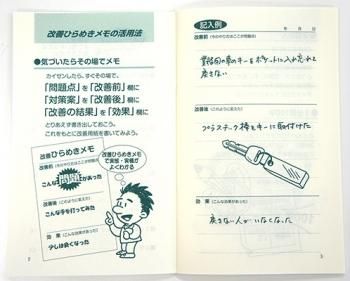 改善ひらめきメモの活用法
●気づいたらその場でメモ
カイゼンしたら、すぐその場で、
「問題点」を「改善前」欄に
「対策案」を「改善後」欄に
「改善の結果」を「効果」欄に
とりあえず書き出しておこう。
これをもとに改善用紙を書いてみよう。
改善ひらめきメモ
改善前(今のやり方はここが問題だ)
こんな問題があった
改善後(このように変えた)
こんな手を打ってみた
効 果(こんな効果があった)
少しは良くなった
改善ひらめきメモ
で実態・実績が
よくわかる
2
記入例
年 月 日
改善前(今のやり方はここが問題だ)
貸出用の車のキーをポケットに入れ忘れて
戻さない
改善後(このように変えた)
プラスチーク棒をキーに取付けた
効 果(こんな効果があった)
戻さない人がいなくなった
3